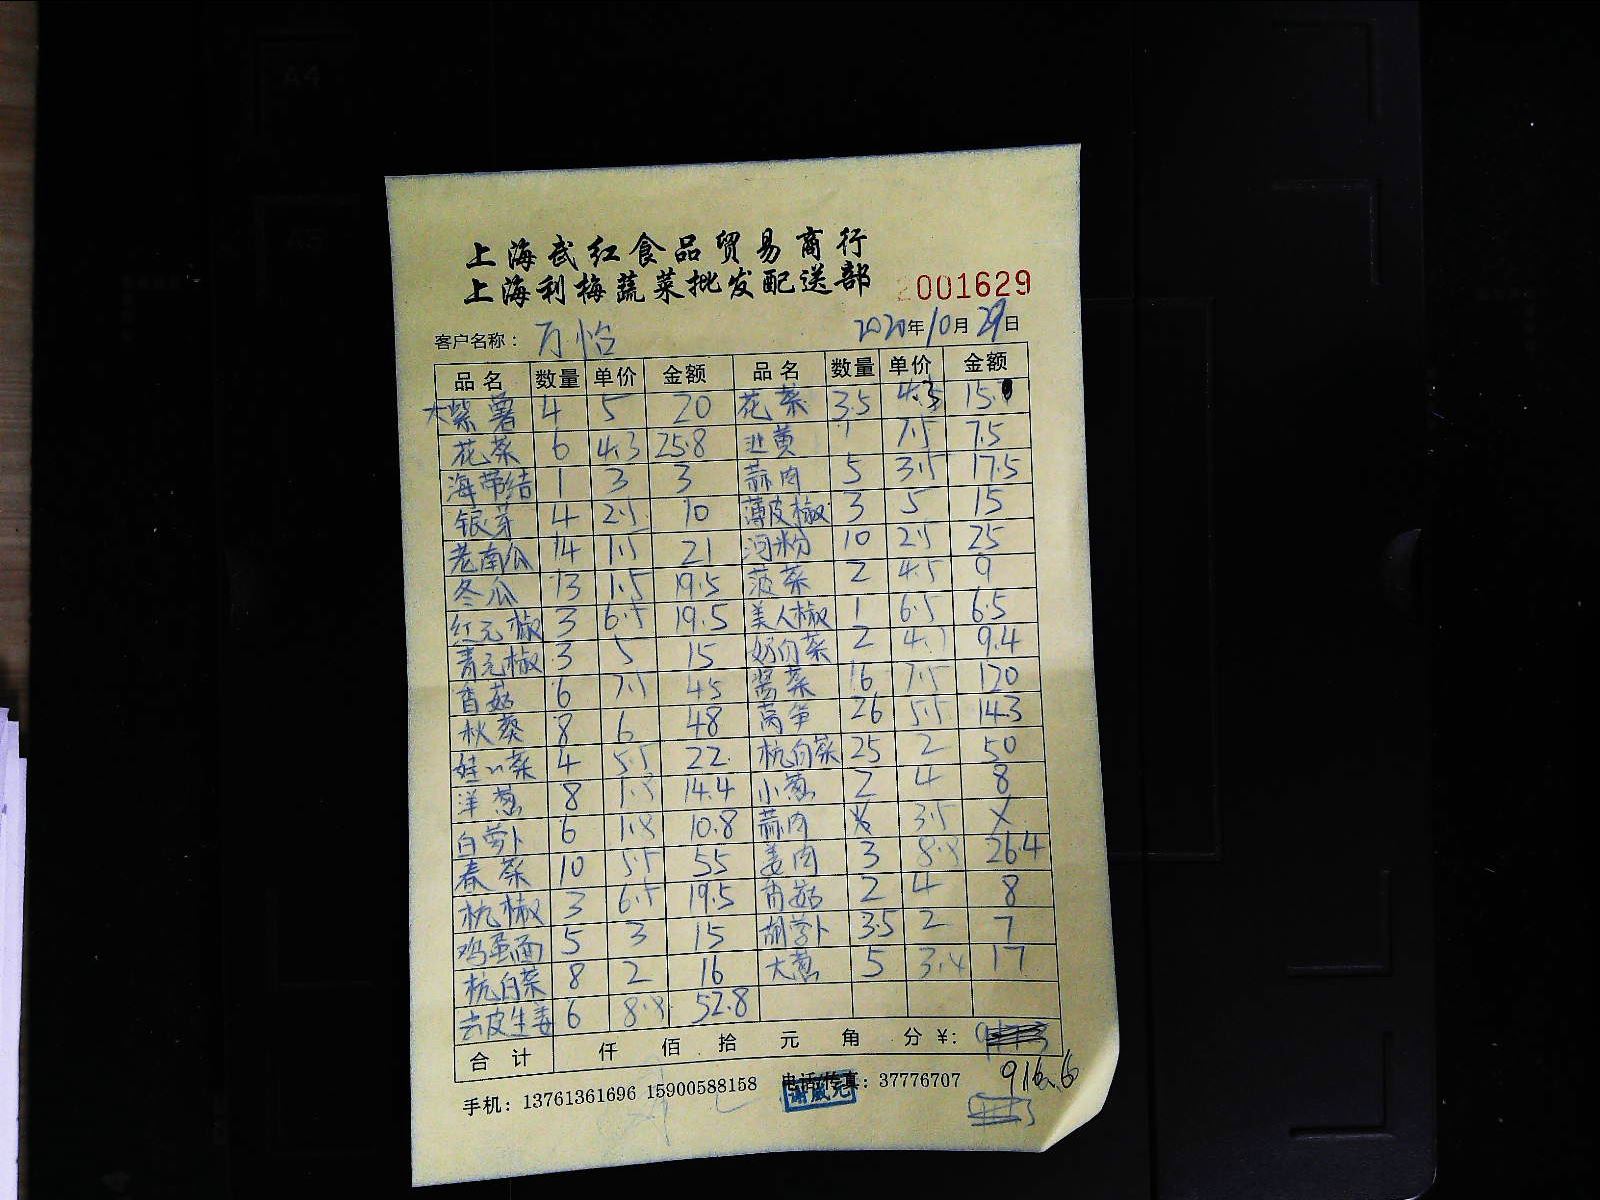 上海武红食品贸易商行
上海利梅蔬菜批发配送部 2001629
客户名称： 万怡 2020年10月29日
品名 数量 单价 金额 品名 数量 单价 金额
大紫薯 4 5 20 花菜 3.5 4.3 15.
花菜 6 4.3 25.8 韭黄 1 7.5 7.5
海带结 1 3 3 蒜肉 5 3.5 17.5
银芽 4 2.5 10 薄皮椒 3 5 15
老南瓜 14 1.5 21 河粉 10 2.5 25
冬瓜 13 1.5 19.5 菠菜 2 4.5 9
红元椒 3 6.5 19.5 美人椒 1 6.5 6.5
青元椒 3 5 15 奶白菜 2 4.7 9.4
香菇 6 7.5 45 16 7.5 120
秋葵 8 6 48 莴笋 26 5.5 143
娃娃菜 4 5.5 22 杭白菜 25 2 50
洋葱 8 1.8 14.4 小葱 2 4 8
白萝卜 6 1.8 10.8 蒜肉 3.5 X
春菜 10 5.5 55 姜肉 3 8.8 26.4
杭椒 3 6.5 19.5 香菇 2 4 8
鸡蛋面 5 3 15 胡萝卜 3.5 2 7
杭白菜 8 2 16 大葱 5 3.4 17
去皮生姜 6 8.8 52.8
合计 仟 佰 拾 元 角 分 ¥:
916.6
手机：13761361696 15900588158 电话/传真：37776707